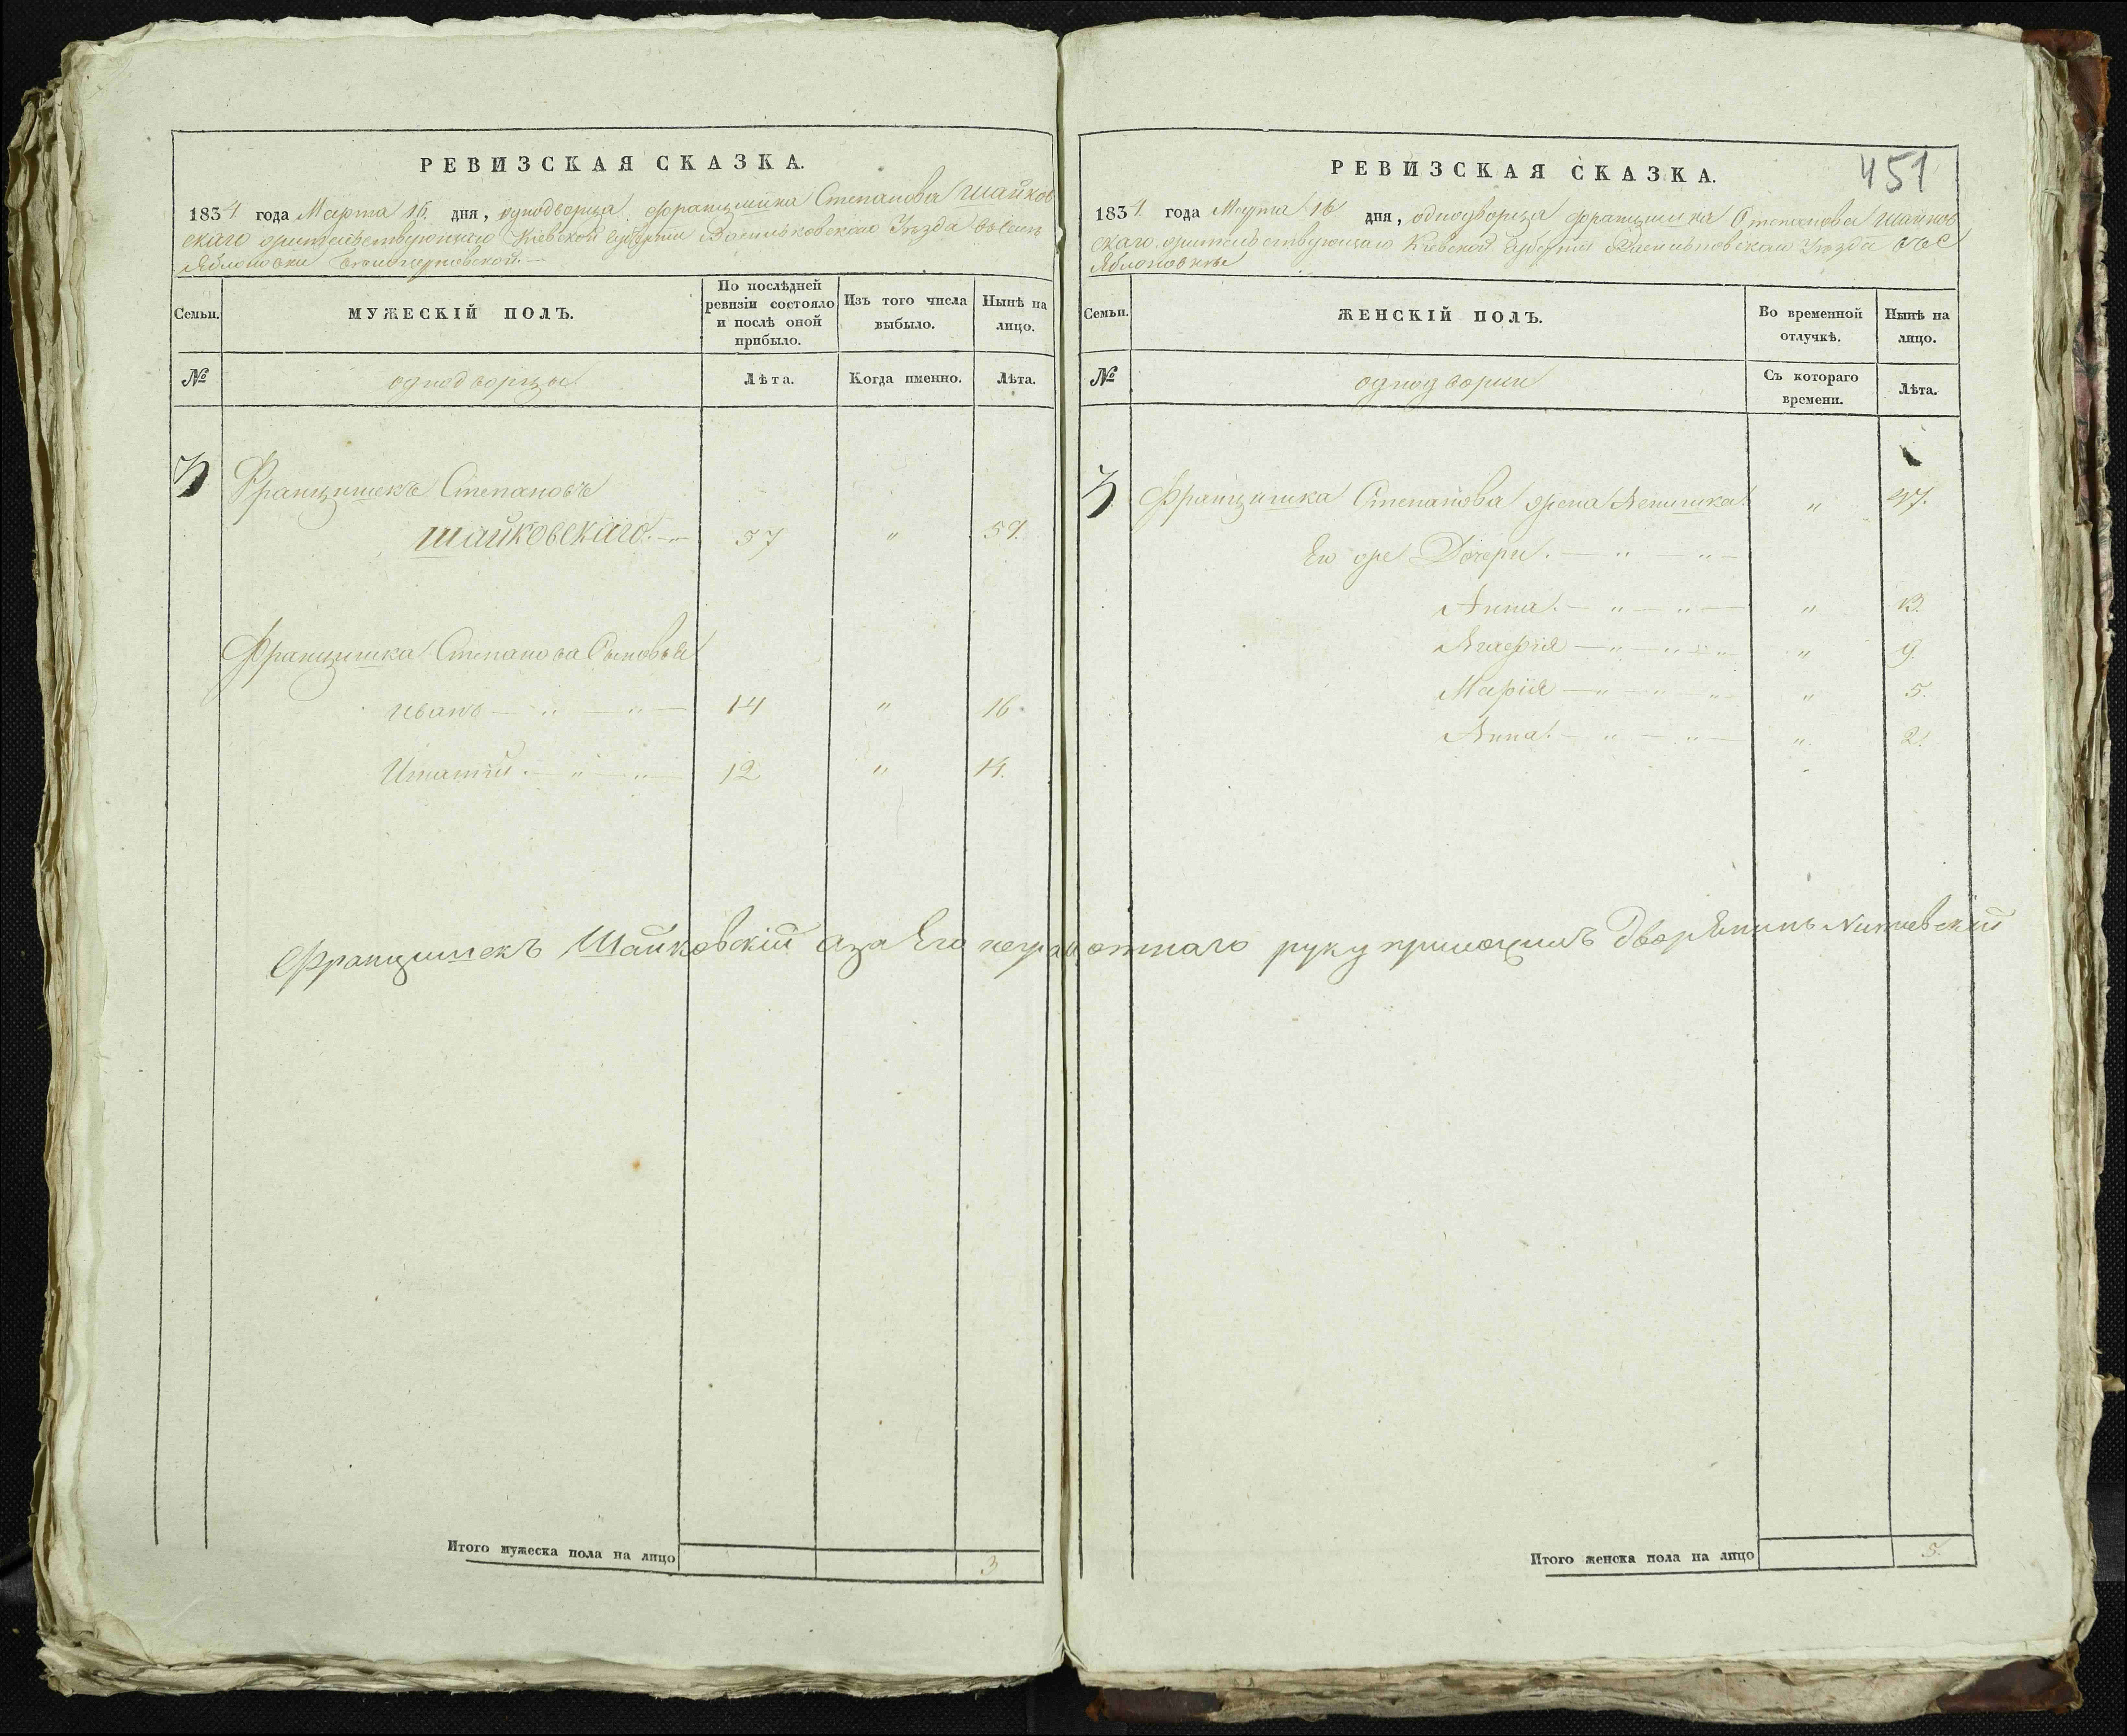 РЕВИЗСКАЯ СКАЗКА.
1834 года Марта 16 дня, однодворца Францишка Степанова Шайков
скаго жительствующаго Кіевской Губерніи Васильковскаго Уѣзда въ Селѣ
Яблоновки
Семьи.
МУЖЕСКІЙ ПОЛЪ.
По послѣдней ревизіи состояло и послѣ оной прибыло.
Изъ того числа выбыло.
Нынѣ на лицо.
№
однодворцы
Лѣта.
Когда именно.
Лѣта.
3 Францишекъ Степановъ
Шайковскаго. 57 " 59.
Францишка Степанова Сыновья
Иванъ 14 " 16
Игнатій. 12 " 14.
Итого мужеска пола на лицо 3
451
РЕВИЗСКАЯ СКАЗКА.
1834 года Марта 16 дня, однодворца Францишка Степанова Шайков
скаго жительствующаго Кіевской Губерніи Васильковскаго Уѣзда въ С
Яблоновкѣ
Семьи.
ЖЕНСКІЙ ПОЛЪ.
Во временной отлучкѣ.
Нынѣ на лицо.
№
однодворки
Съ котораго времени.
Лѣта.
3 Францишка Степанова жена "
Его же Дочери.
Анна. " 13.
" 9.
Марія " 5.
Анна. " 2.
Францишекъ Шайковскій а за Его неграмотнаго руку приложилъ Дворянинъ
Итого женска пола на лицо 5.